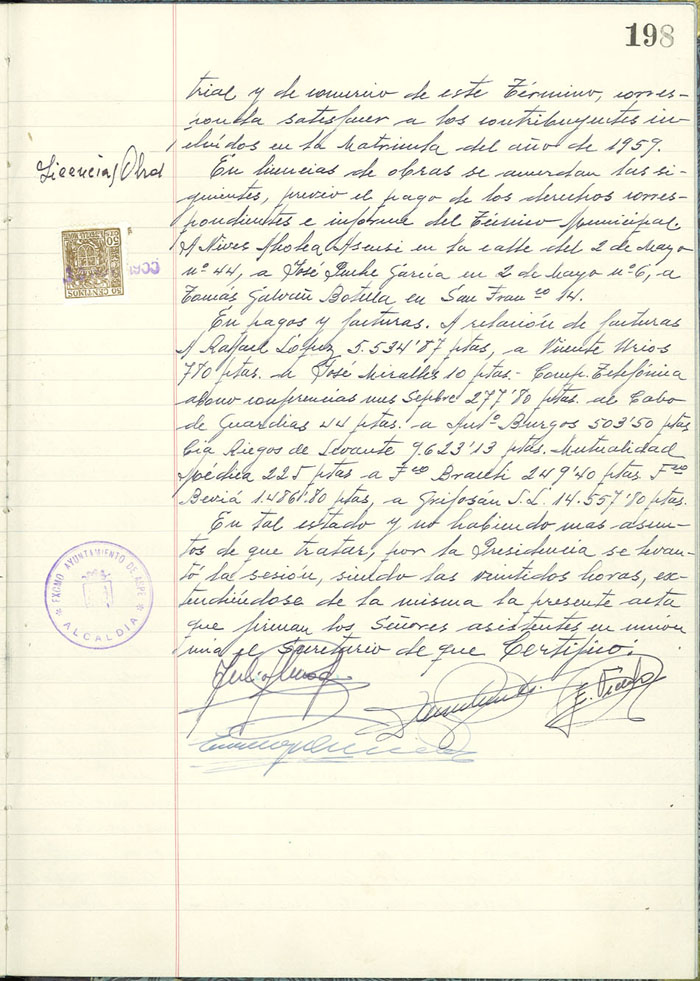 198
trial y de comercio de este Término, corres-
ponda satisfacer a los contribuyentes in-
cluídos en la Matricula del año de 1959.
Licencias Obras
En licencias de obras se acuerdan las si-
guientes, previo el pago de los derechos corres-
pondientes e informe del Técnico Municipal.
A Nieves Asensi en la calle del 2 de Mayo
nº 44, a José Puche García en 2 de Mayo nº 6, a
Tomás Galvañ Botella en San Franco 14.
50 CENTIMOS
En pagos y facturas. A relación de facturas
A Rafael López 5.534'87 ptas, a Vicente Urios
780 ptas. a José Miralles 10 ptas.- Comp. Telefónica
abono conferencias mes Sepbre 277'80 ptas. al Cabo
de Guardias 44 ptas. a Antº Burgos 503'50 ptas
Cia Riegos de Levante 9.623'13 ptas. Mutualidad
Médica 225 ptas a Fco 249'40 ptas Fco
Beviá 1.486'80 ptas, a Grifosán S.L. 14.557'80 ptas.
En tal estado y no habiendo mas asun-
tos de que tratar, por la Presidencia se levan-
tó la sesión, siendo las veintidos horas, ex-
tendiéndose de la misma la presente acta
que firman los Señores asistentes en union
mia el Secretario de que Certifico.
EXCMO AYUNTAMIENTO DE ASPE
ALCALDIA